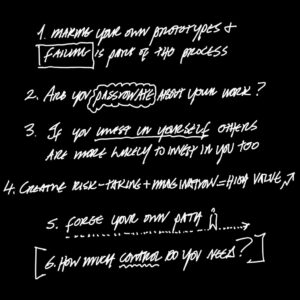 1. MAKING YOUR OWN PROTOTYPES +
FAILING IS PART OF THE PROCESS
2. ARE YOU PASSIONATE ABOUT YOUR WORK?
3. IF YOU INVEST IN YOURSELF OTHERS
ARE MORE LIKELY TO INVEST IN YOU TOO
4. CREATIVE RISK-TAKING + IMAGINATION = HIGH VALUE
5. FORGE YOUR OWN PATH
6. HOW MUCH CONTROL DO YOU NEED?